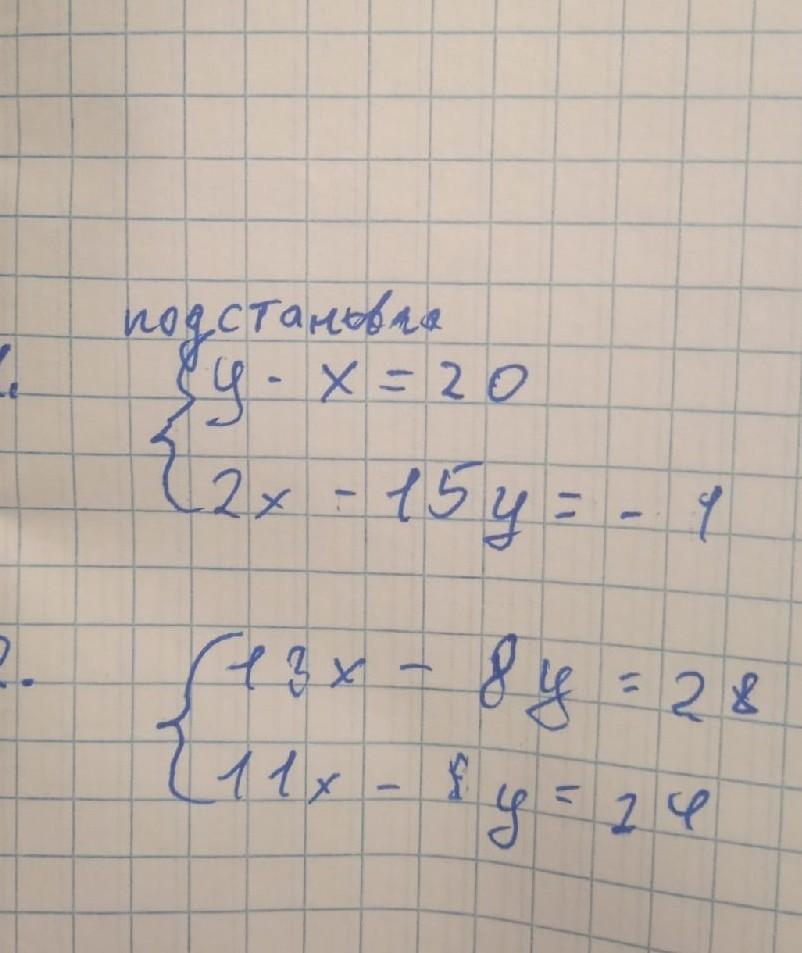 подстановка
1. y - x = 20
2x - 15y = - 1
2. 13x - 8y = 28
11x - 8y = 24